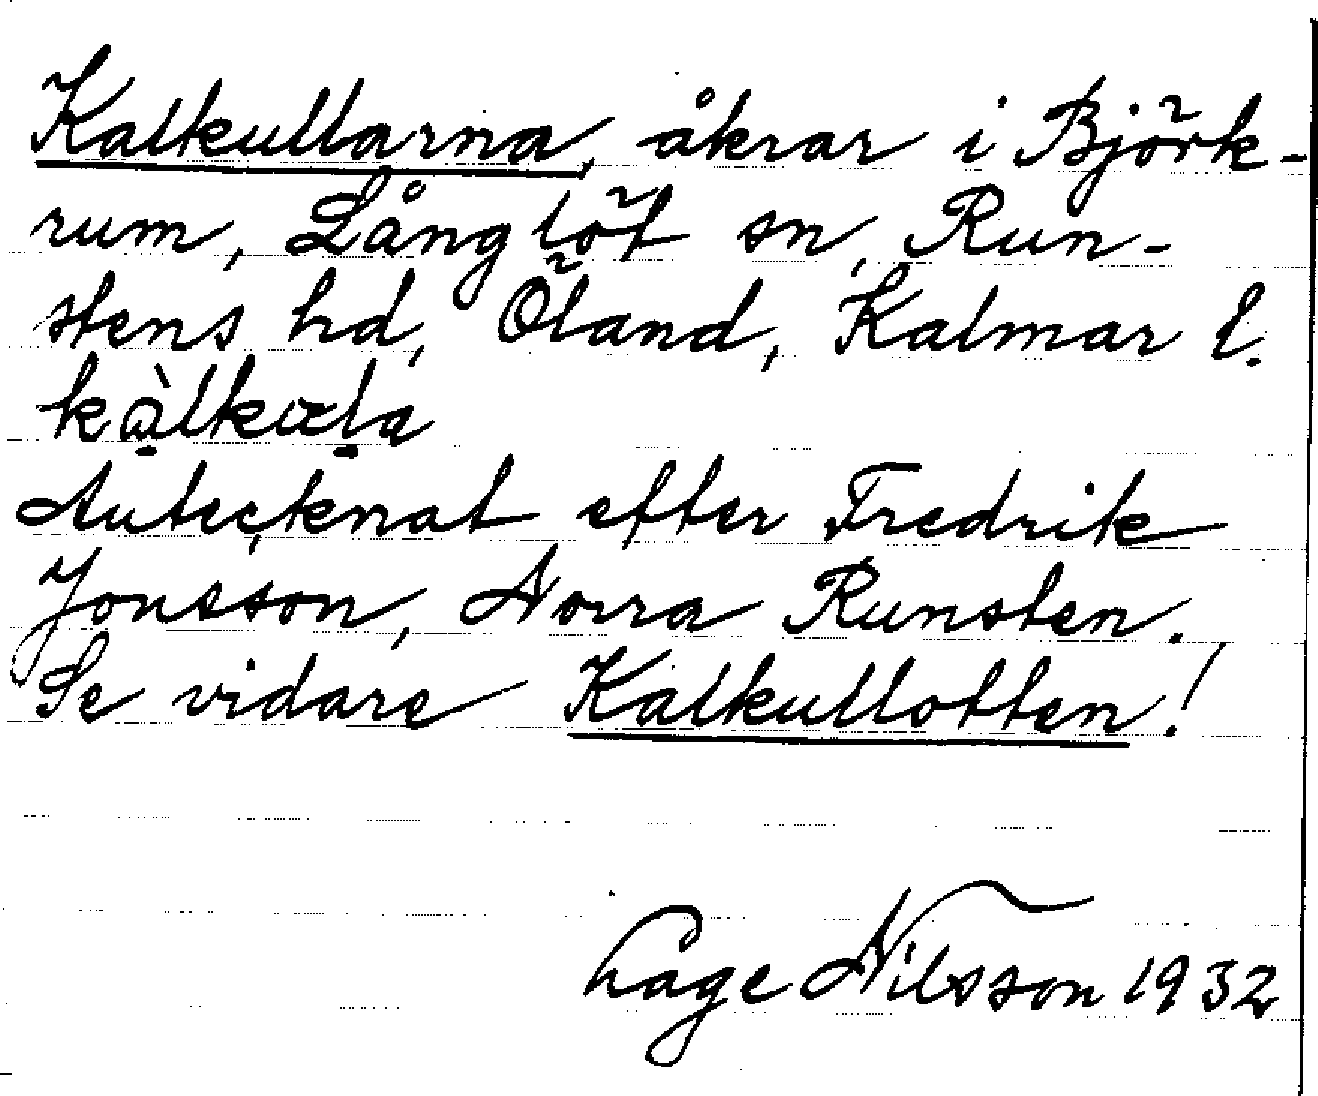 Kalkullarna, åkrar i Björk-
rum, Långlöt sn, Run-
stens hd, Öland, Kalmar l.
Antecknat efter Fredrik
Jonsson, Norra Runsten.
Se vidare Kalkullotten!
Låge Nilsson 1932